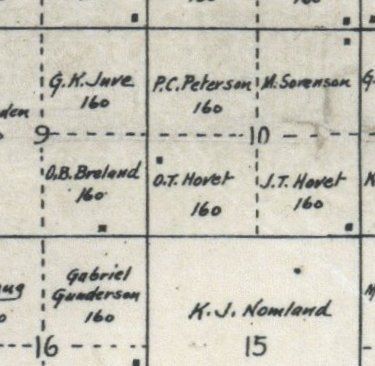 G.K. Juve
160
P.C. Peterson
160
M. Sorenson
den
9
10
O.B. Breland
160
O.T. Hovet
160
J.T. Hovet
160
Gabriel
Gunderson
160
K. J. Nomland
16
15